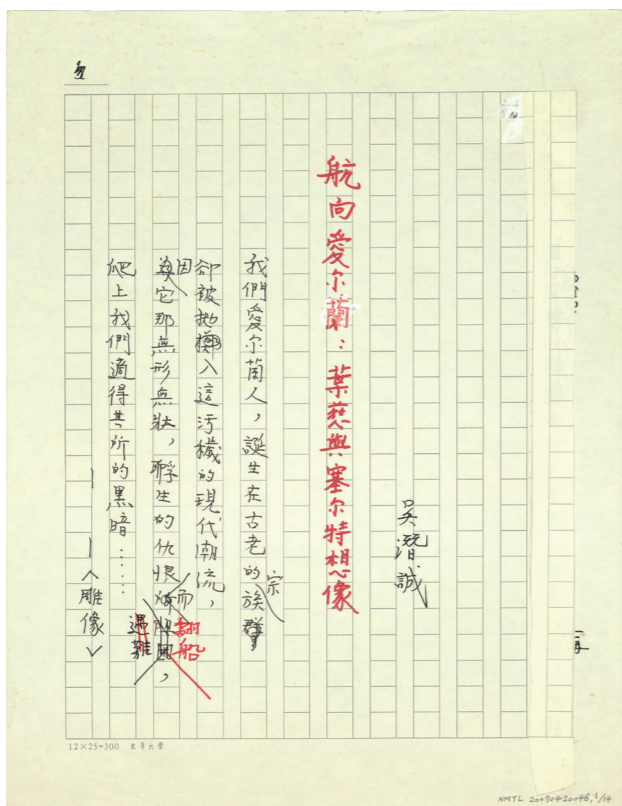 航向愛尔蘭：葉慈與塞尔特想像
吳潛誠
我們愛尔蘭人，誕生在古老的宗族
卻被拋擲入這污穢的現代潮流，
因它那無形無狀，孵生的仇恨而翻船，
爬上我們適得其所的黑暗……
——〈雕像〉
12×25=300
NMTL 20090420048, 1/14